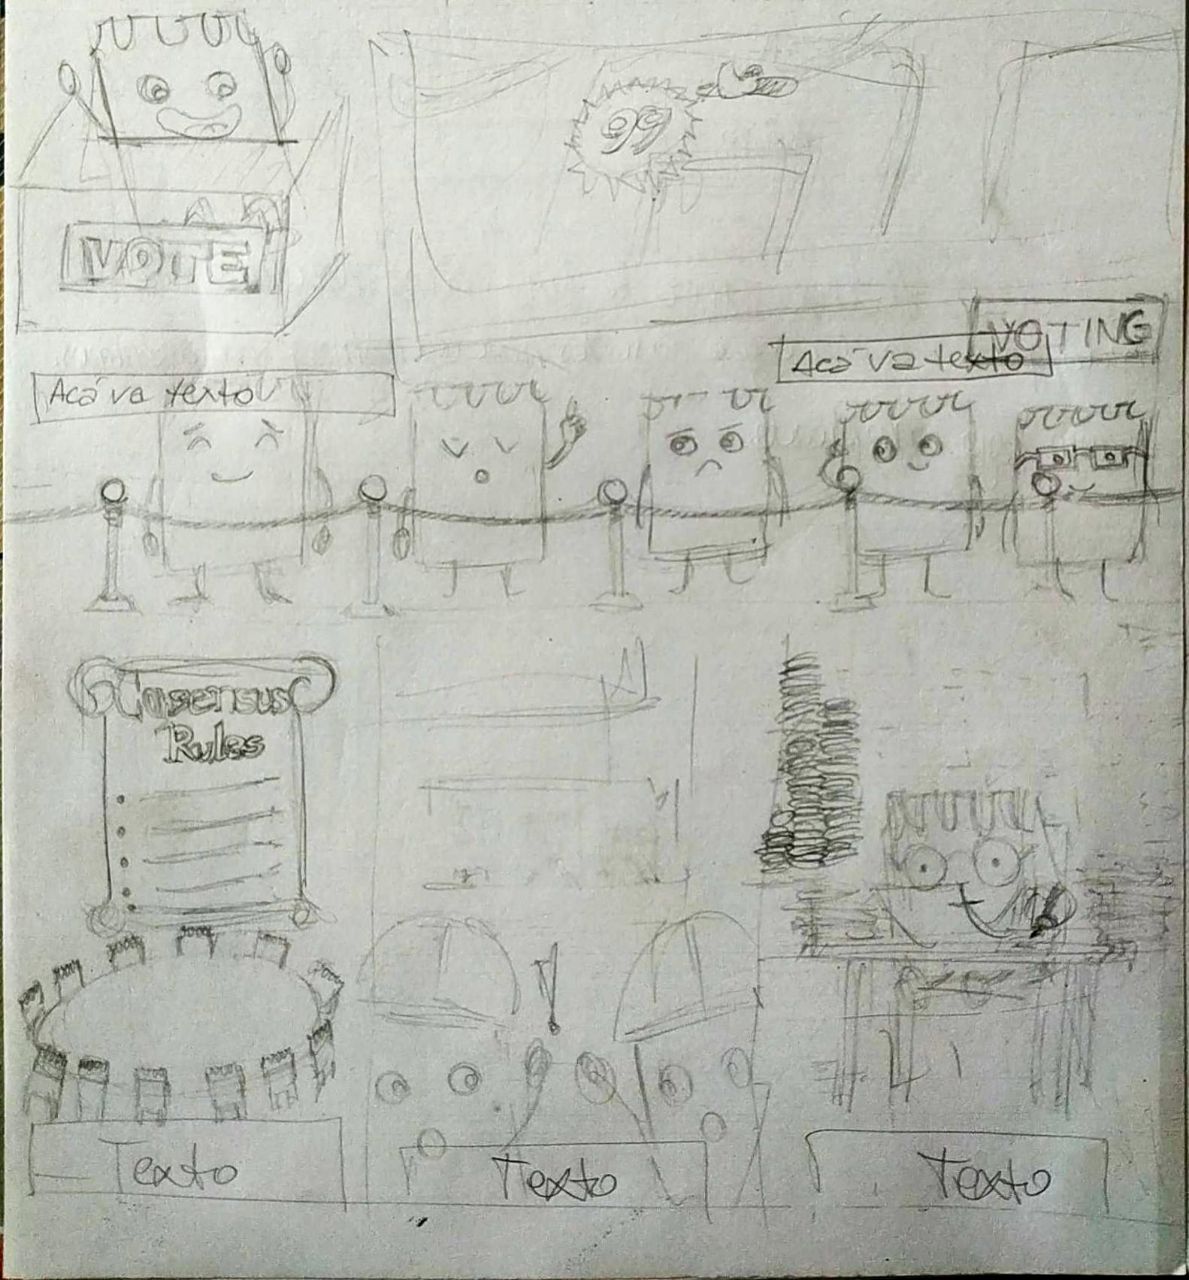 VOTE
99
VOTING
Acá va texto
Acá va texto
Cosensus
Rules
Texto
Texto
Texto